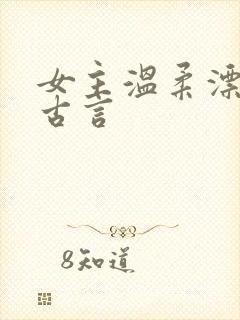 女主温柔漂
古言
8知道